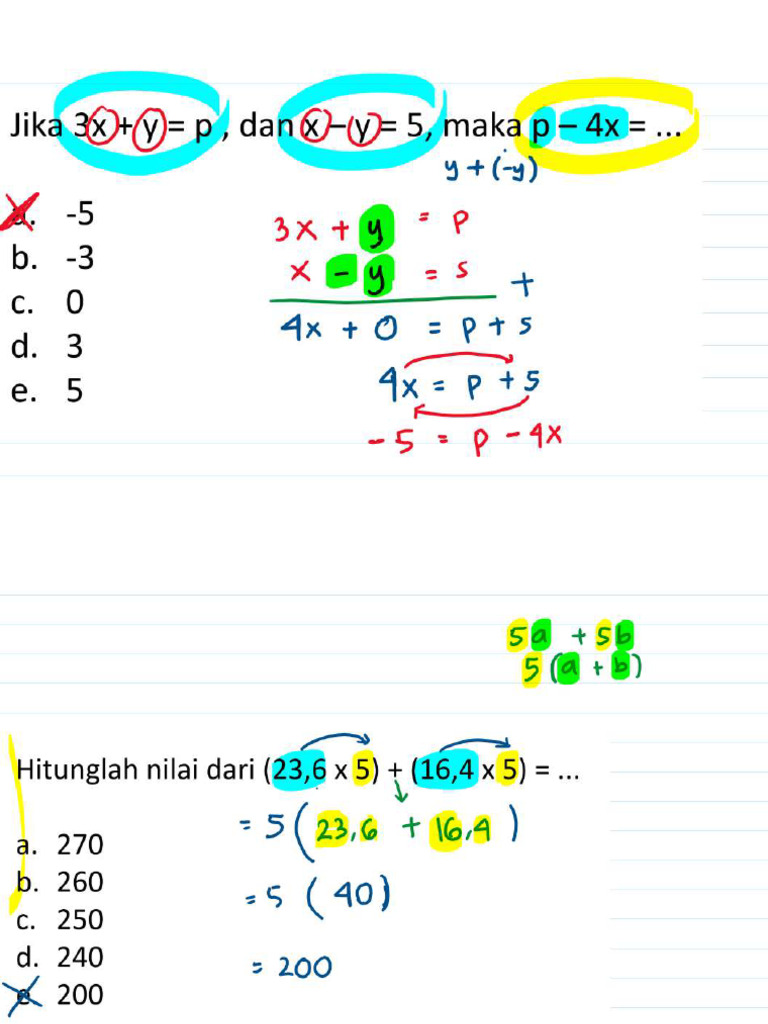 Jika 3x + y = p , dan x – y = 5, maka p – 4x = ...
y + (-y)
a. -5
b. -3
c. 0
d. 3
e. 5
3x + y = p
x - y = 5 +
4x + 0 = p + 5
4x = p + 5
-5 = p - 4x
5a + 5b
5(a + b)
Hitunglah nilai dari (23,6 x 5) + (16,4 x 5) = ...
= 5(23,6 + 16,4)
= 5 (40)
= 200
a. 270
b. 260
c. 250
d. 240
e. 200